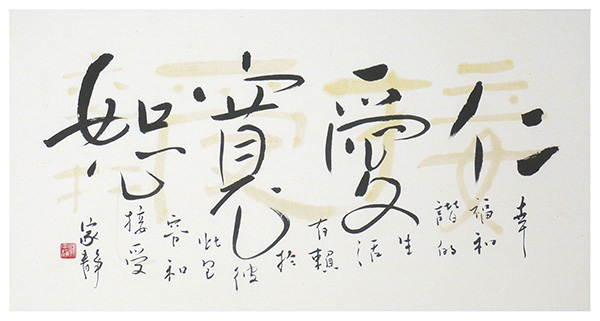 仁愛寬恕
幸
福和
諧的
生
活
有賴
於
彼
此包
容和
接受
家靜